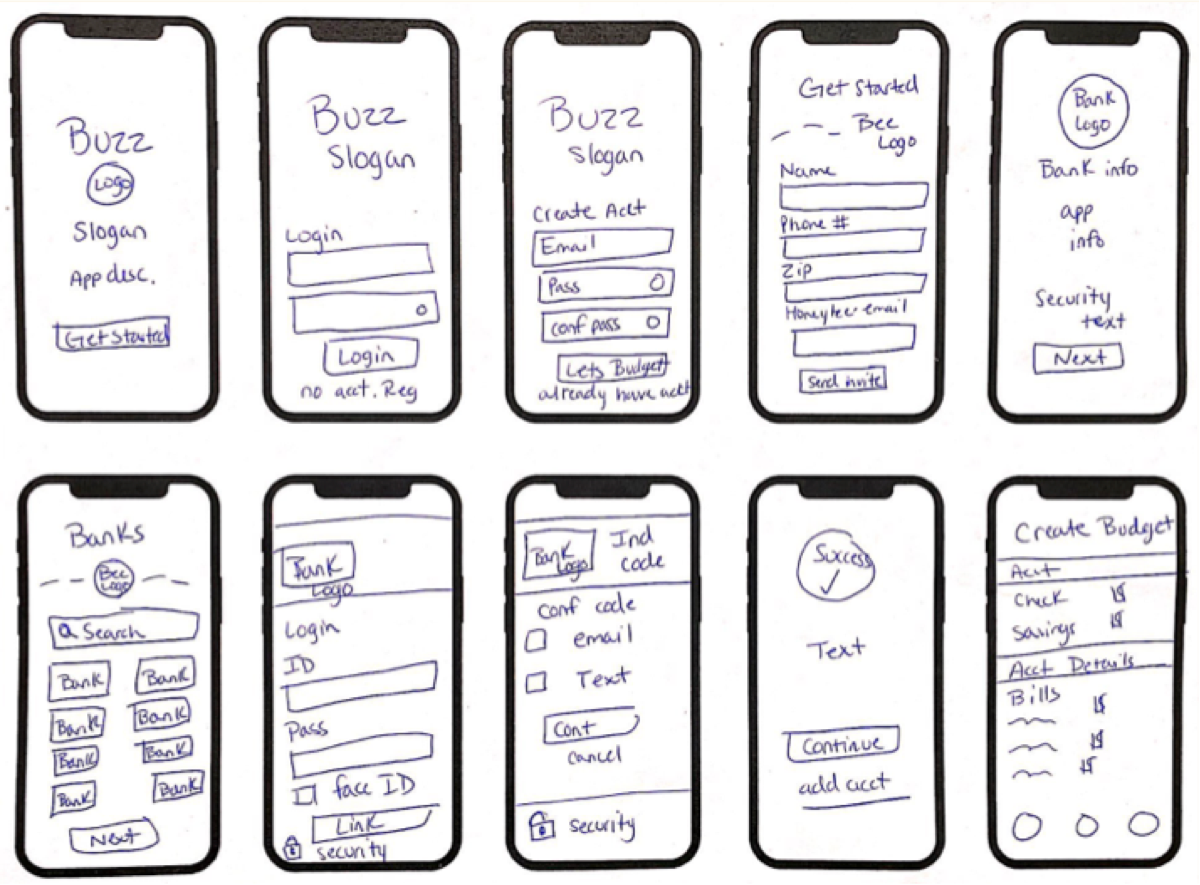 Buzz
Logo
Slogan
App desc.
Get Started
Buzz
Slogan
Login
Login
no acct. Reg
Buzz
Slogan
Create Acct
Email
Pass
conf pass
Lets Budget
already have acct
Get Started
Bee
Logo
Name
Phone #
Zip
email
Send invite
Bank
Logo
Bank info
app
info
Security
text
Next
Banks
Bee
Logo
Search
Bank Bank
Bank Bank
Bank Bank
Bank Bank
Next
Bank
Logo
Login
ID
Pass
face ID
Link
security
Bank
Logo
Ind
code
Conf code
email
Text
Cont
cancel
security
Success
Text
Continue
add acct
Create Budget
Acct
Check $
Savings $
Acct Details
Bills $
$
$